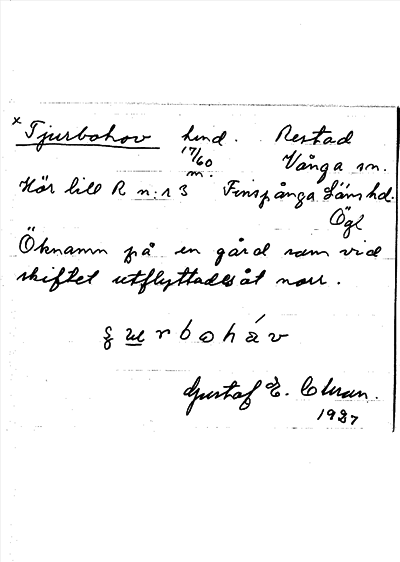 × Tjurbohov hmd. Restad
17/60 Vånga sn.
m.
Hör till R n:r 3 Finspånga Läns hd.
Ögl
Öknamn på en gård som vid
skiftet utflyttades åt norr.
boháv
Gustaf E.
1927